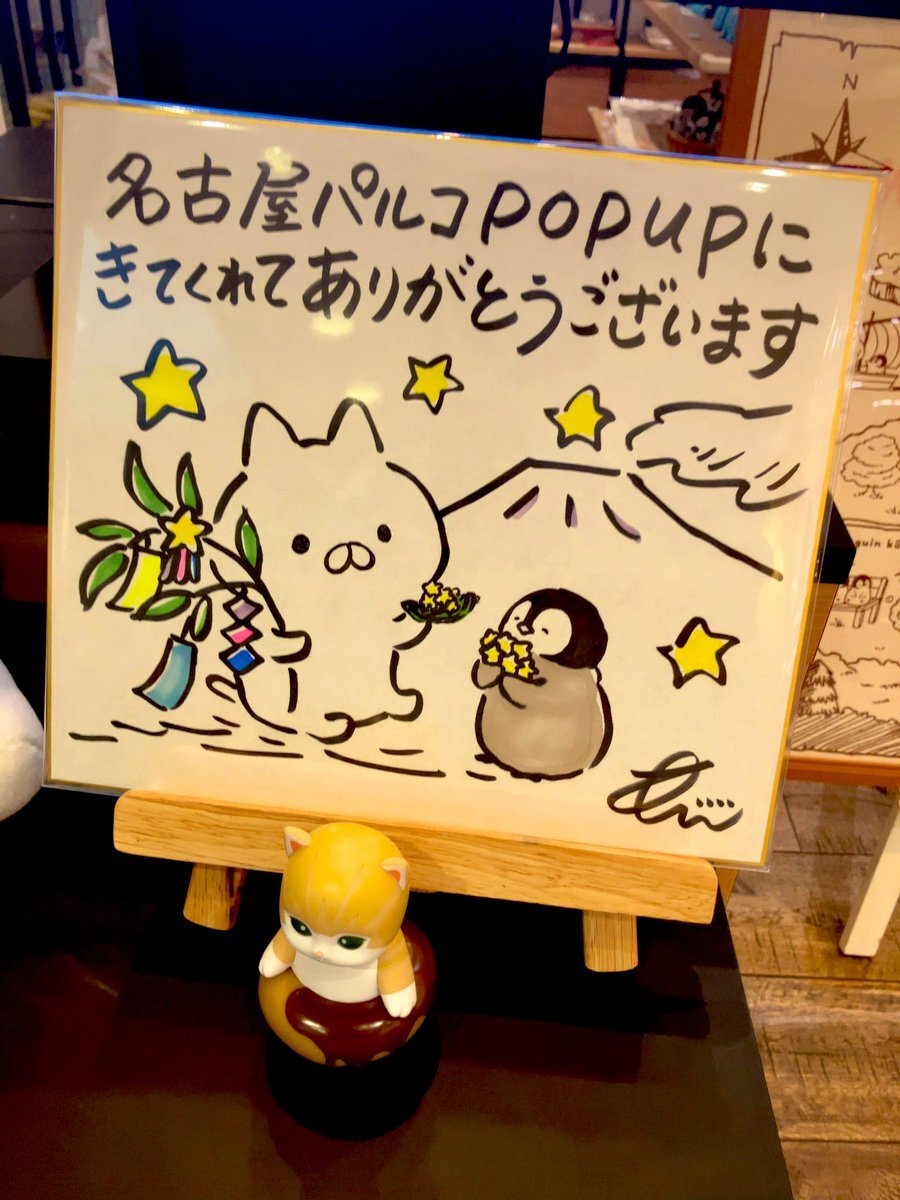 名古屋パルコpopupに
きてくれてありがとうございます
N